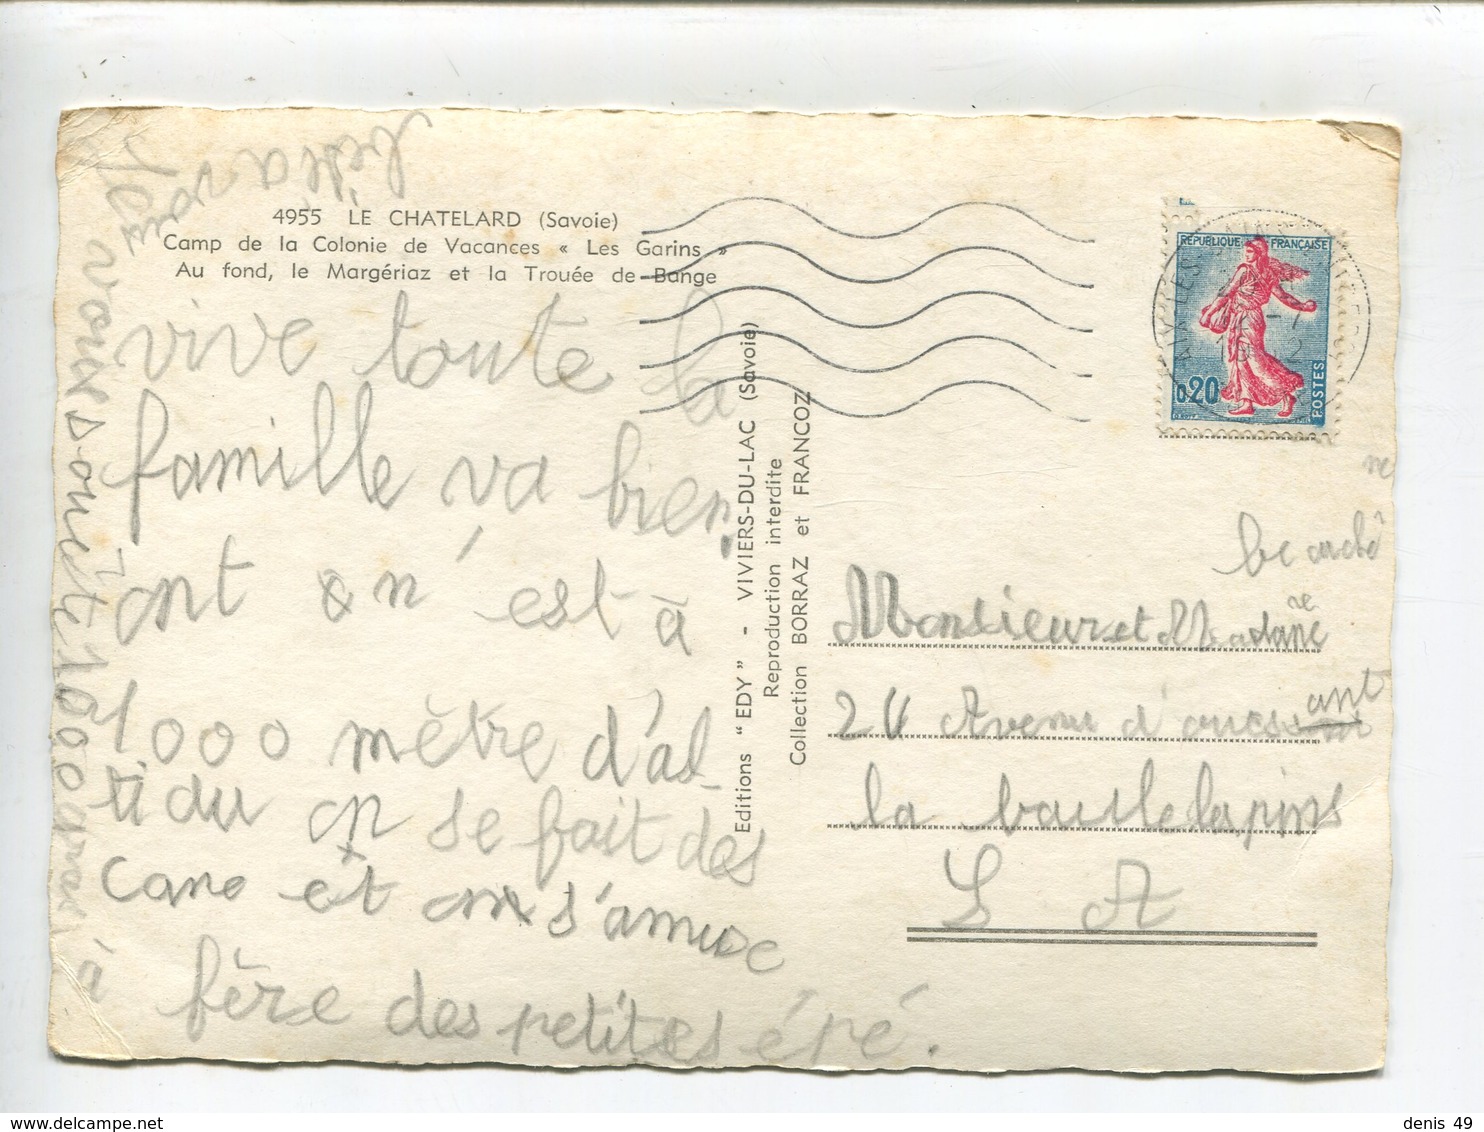 4955 LE CHATELARD (Savoie)
Camp de la Colonie de Vacances « Les Garins »
Au fond, le Margériaz et la Trouée de Bange
vive toute la
famille va bien,
ont on n'est à
1000 mètre d'al-
ti du on se fait des
cane et on s'amuse
fère des petites épé.
vous souète 1000
Editions " EDY " - VIVIERS-DU-LAC (Savoie)
Reproduction interdite
Collection BORRAZ et FRANCOZ
REPUBLIQUE FRANÇAISE
0,20
POSTES
ne
Monsieur et Madane
Avenu d'
ant
la baulle lapins
L A
denis 49